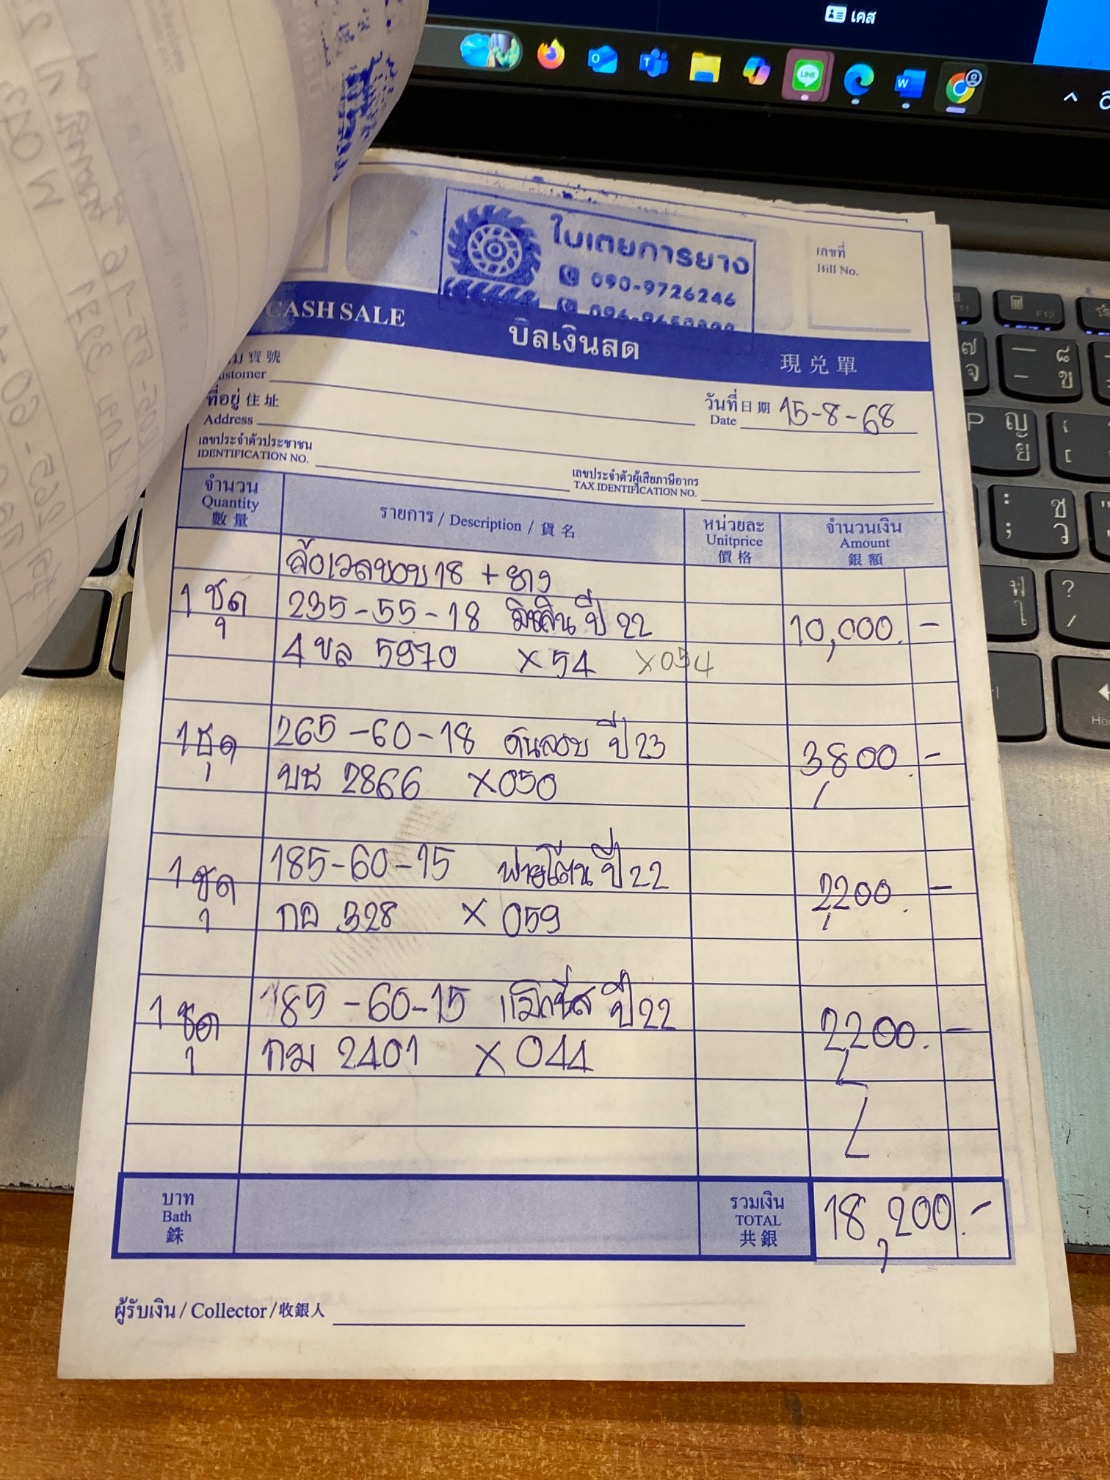 เคส
ใบเตยการยาง
090-9726246
เลขที่
Bill No.
CASH SALE
บิลเงินสด
現兌單
寶號
ที่อยู่ 住址
Address
วันที่ 日期
Date 15-8-68
เลขประจำตัวประชาชน
IDENTIFICATION NO.
เลขประจำตัวผู้เสียภาษีอากร
TAX IDENTIFICATION NO.
จำนวน
Quantity
數量
รายการ / Description / 貨名
หน่วยละ
Unitprice
價格
จำนวนเงิน
Amount
銀額
ล้อเวลขอบ 18 + ยาง
1 ชุด 235-55-18 มิชลิน ปี 22 10,000.-
4ขล 5970 X54 X054
1 ชุด 265-60-18 ดันลอบ ปี 23 3,800.-
บช 2866 X050
1 ชุด 185-60-15 ฟายโตน ปี 22 2,200.-
กอ 328 X 059
1 ชุด 185-60-15 แม็กซีส ปี 22 2,200.-
กม 2401 X 044
บาท
Bath
銖
รวมเงิน
TOTAL
共銀
18,200.-
ผู้รับเงิน / Collector / 收銀人